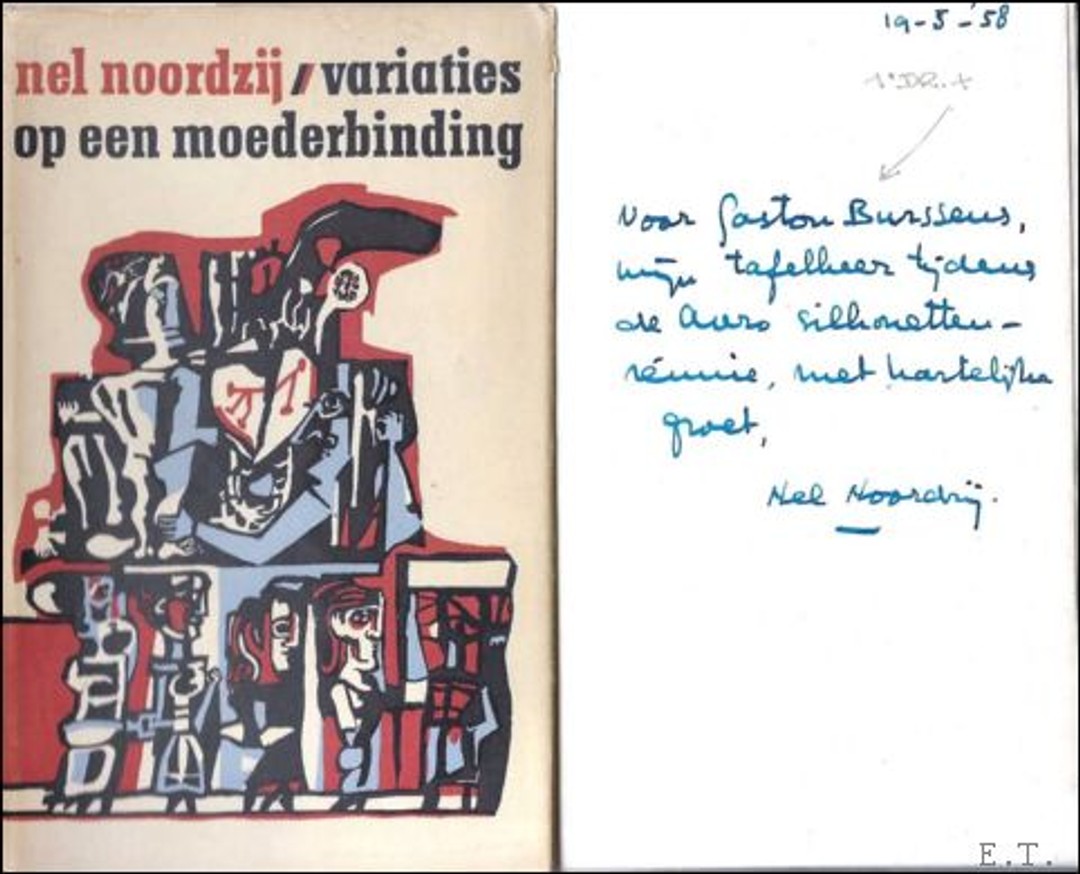 nel noordzij / variaties
op een moederbinding
19-5-'58
Voor Gaston Burssens,
mijn tafelheer tijdens
de Avro silhouetten-
réunie, met hartelijke
groet,
Nel Noordzij.
E.T.